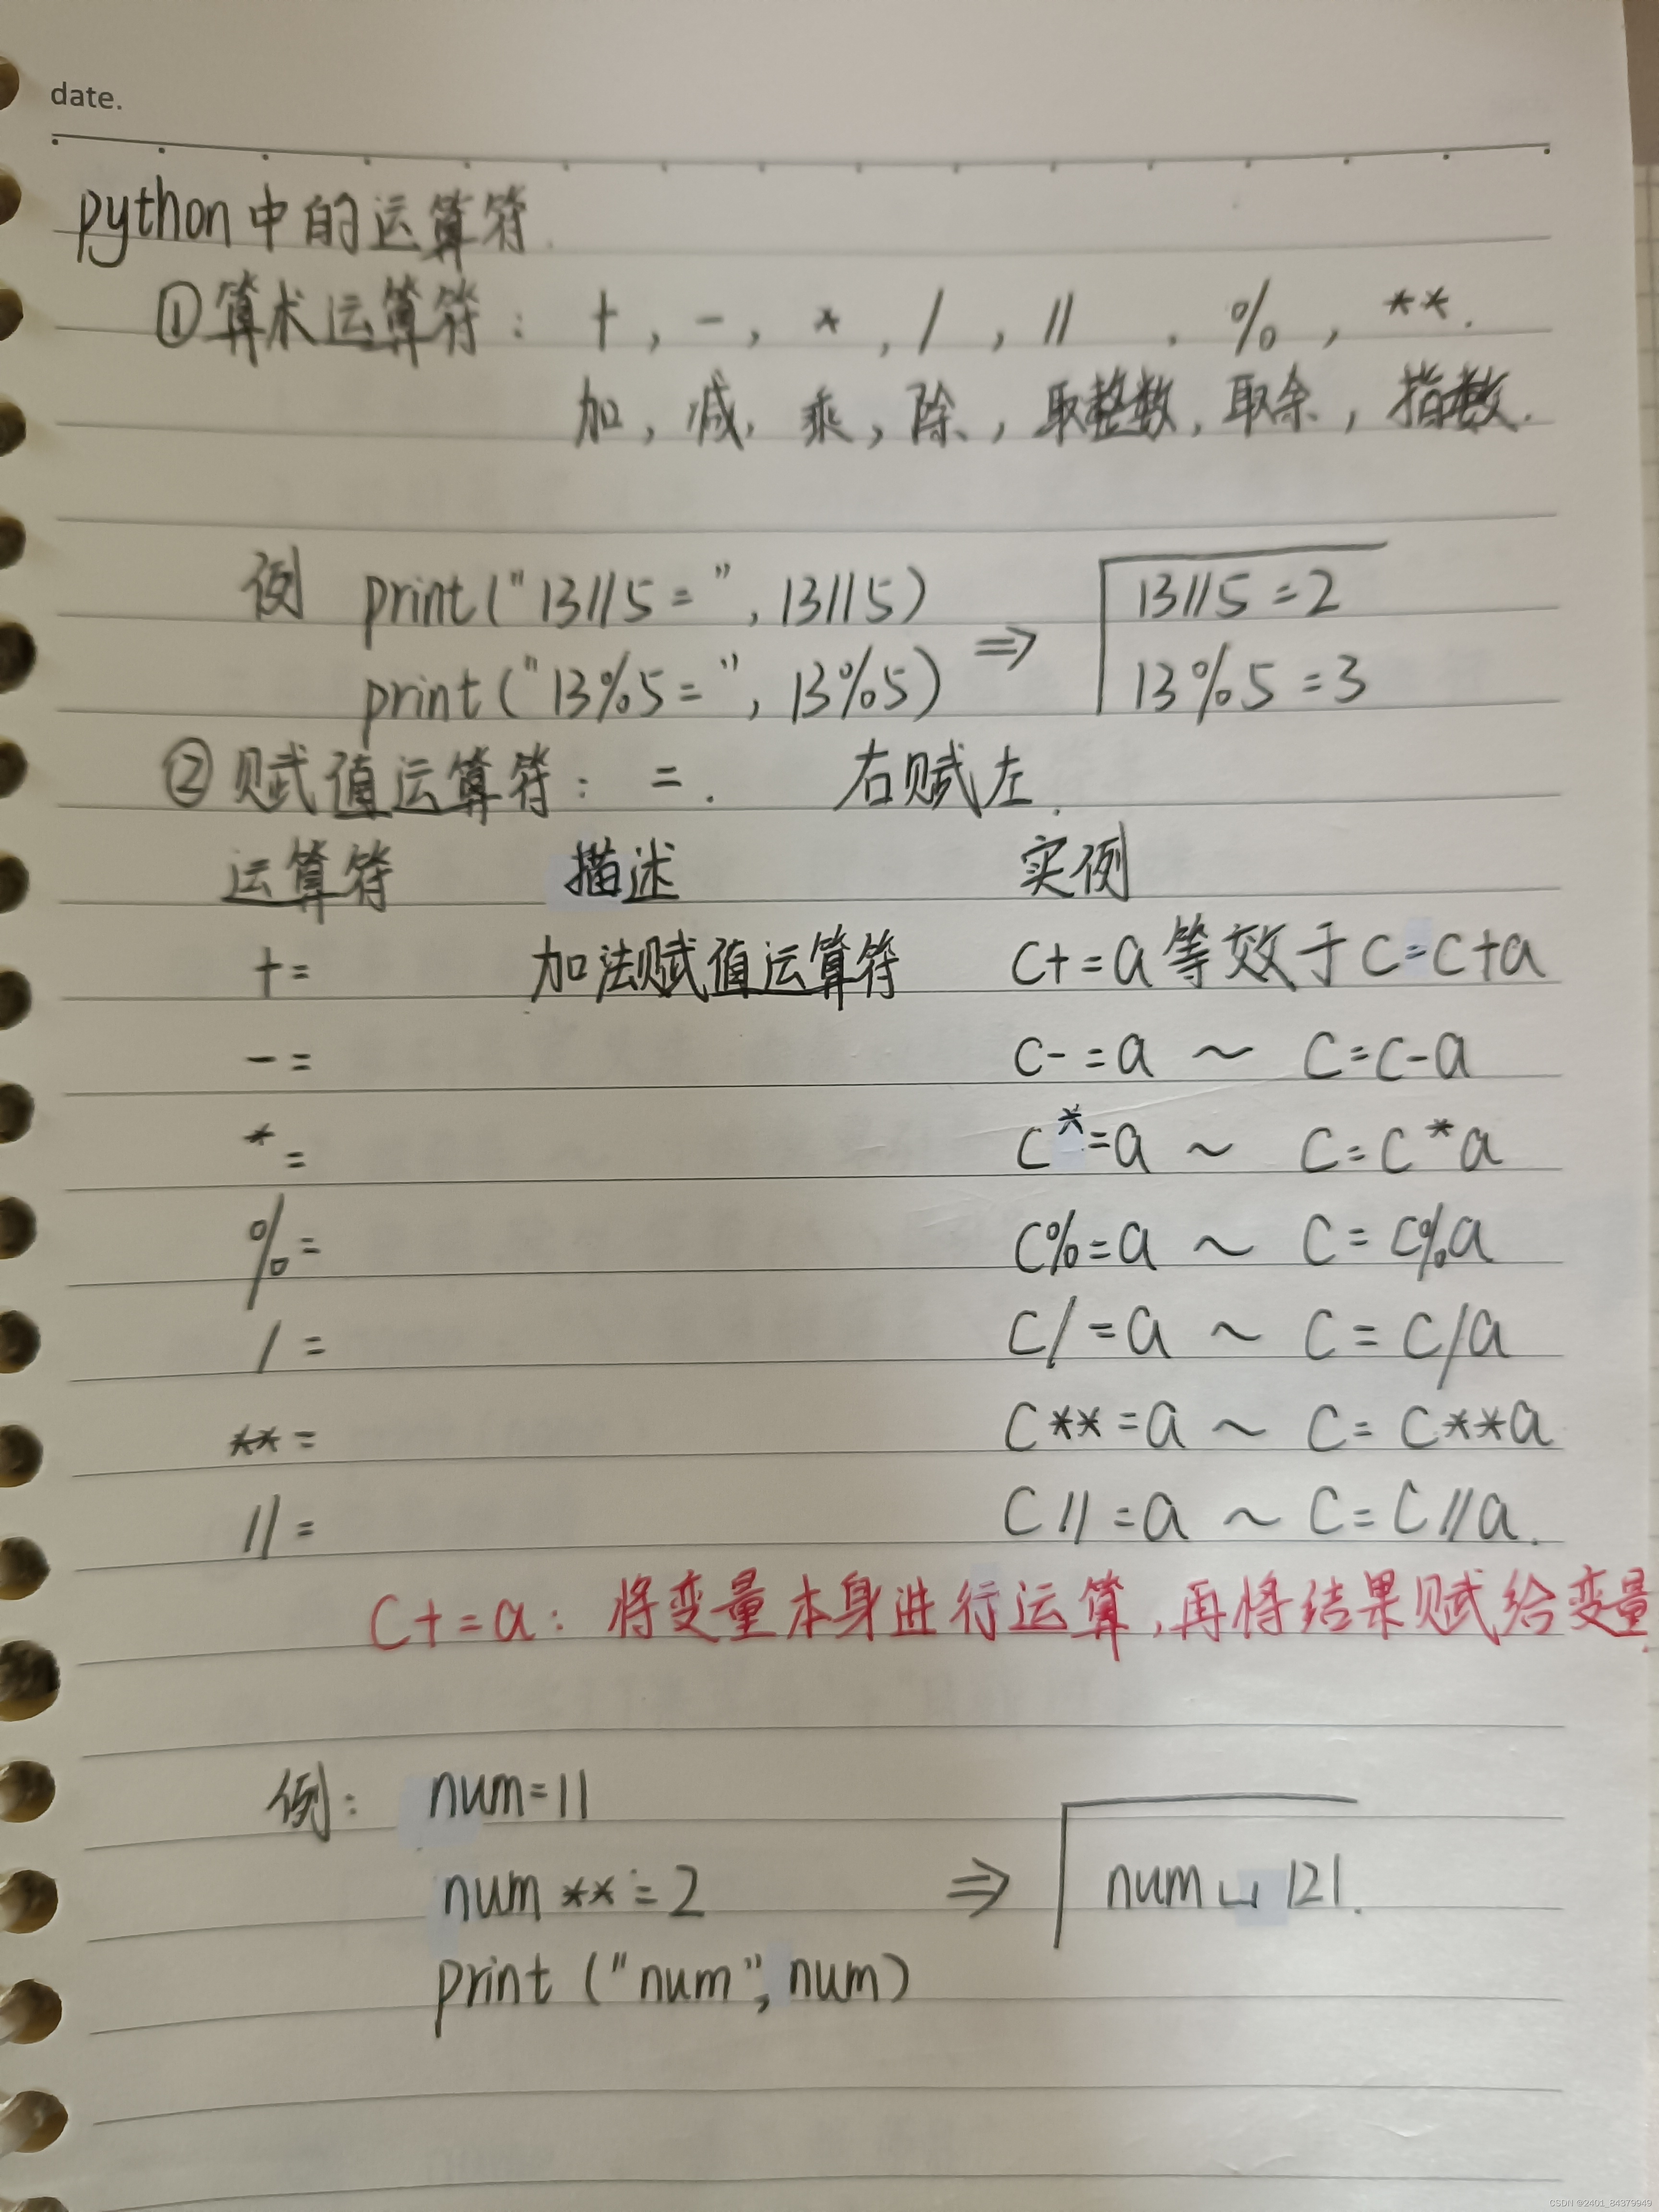 date.
python中的运算符.
①算术运算符: +, -, *, /, //, %, **.
加, 减, 乘, 除, 取整数, 取余, 指数.
例 print("13//5=", 13//5) ⇒ 13//5=2
print("13%5=", 13%5) 13%5=3
②赋值运算符: =. 右赋左.
运算符 描述 实例
+= 加法赋值运算符 c+=a等效于c=c+a
-= c-=a ~ c=c-a
*= c*=a ~ c=c*a
%= c%=a ~ c=c%a
/= c/=a ~ c=c/a
**= c**=a ~ c=c**a
//= c//=a ~ c=c//a.
c+=a: 将变量本身进行运算,再将结果赋给变量.
例: num=11
num**=2 ⇒ num␣121.
print("num", num)
CSDN @2401_84379949